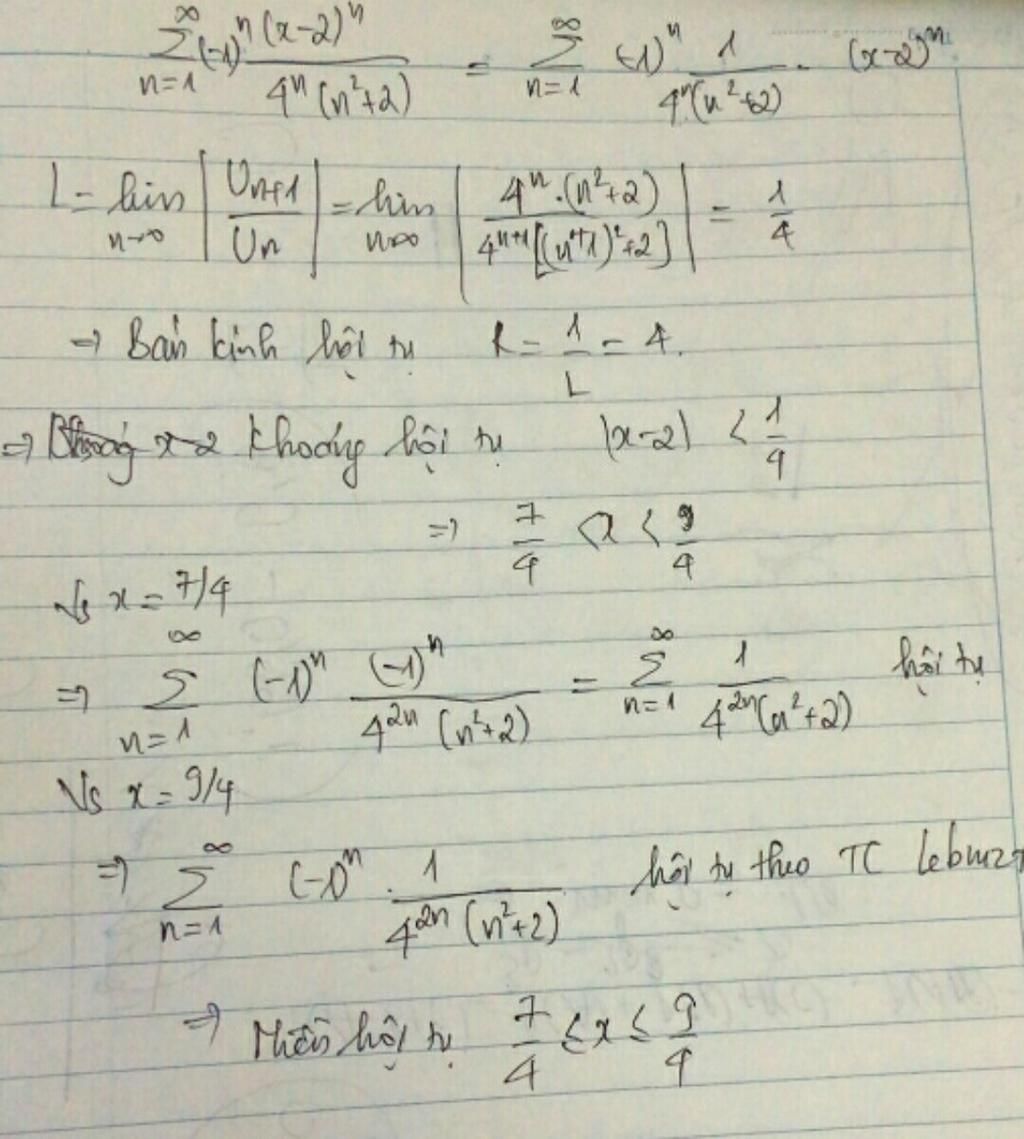 ∞ Σ n=1 (-1)ⁿ (x-2)ⁿ / 4ⁿ (n²+2) = ∞ Σ n=1 (-1)ⁿ 1 / 4ⁿ(n²+2) . (x-2)ⁿ
L = lim n→∞ |Un+1 / Un| = lim n→∞ |4ⁿ.(n²+2) / 4ⁿ⁺¹[(n+1)²+2]| = 1/4
⇒ Bán kính hội tụ R = 1/L = 4.
⇒ Khoảng hội tụ |x-2| < 1/4
⇒ 7/4 < x < 9/4
Vs x = 7/4
⇒ ∞ Σ n=1 (-1)ⁿ (-1)ⁿ / 4²ⁿ (n²+2) = ∞ Σ n=1 1 / 4²ⁿ(n²+2) hội tụ
Vs x = 9/4
⇒ ∞ Σ n=1 (-1)ⁿ . 1 / 4²ⁿ (n²+2) hội tụ theo TC
⇒ Miền hội tụ 7/4 ≤ x ≤ 9/4